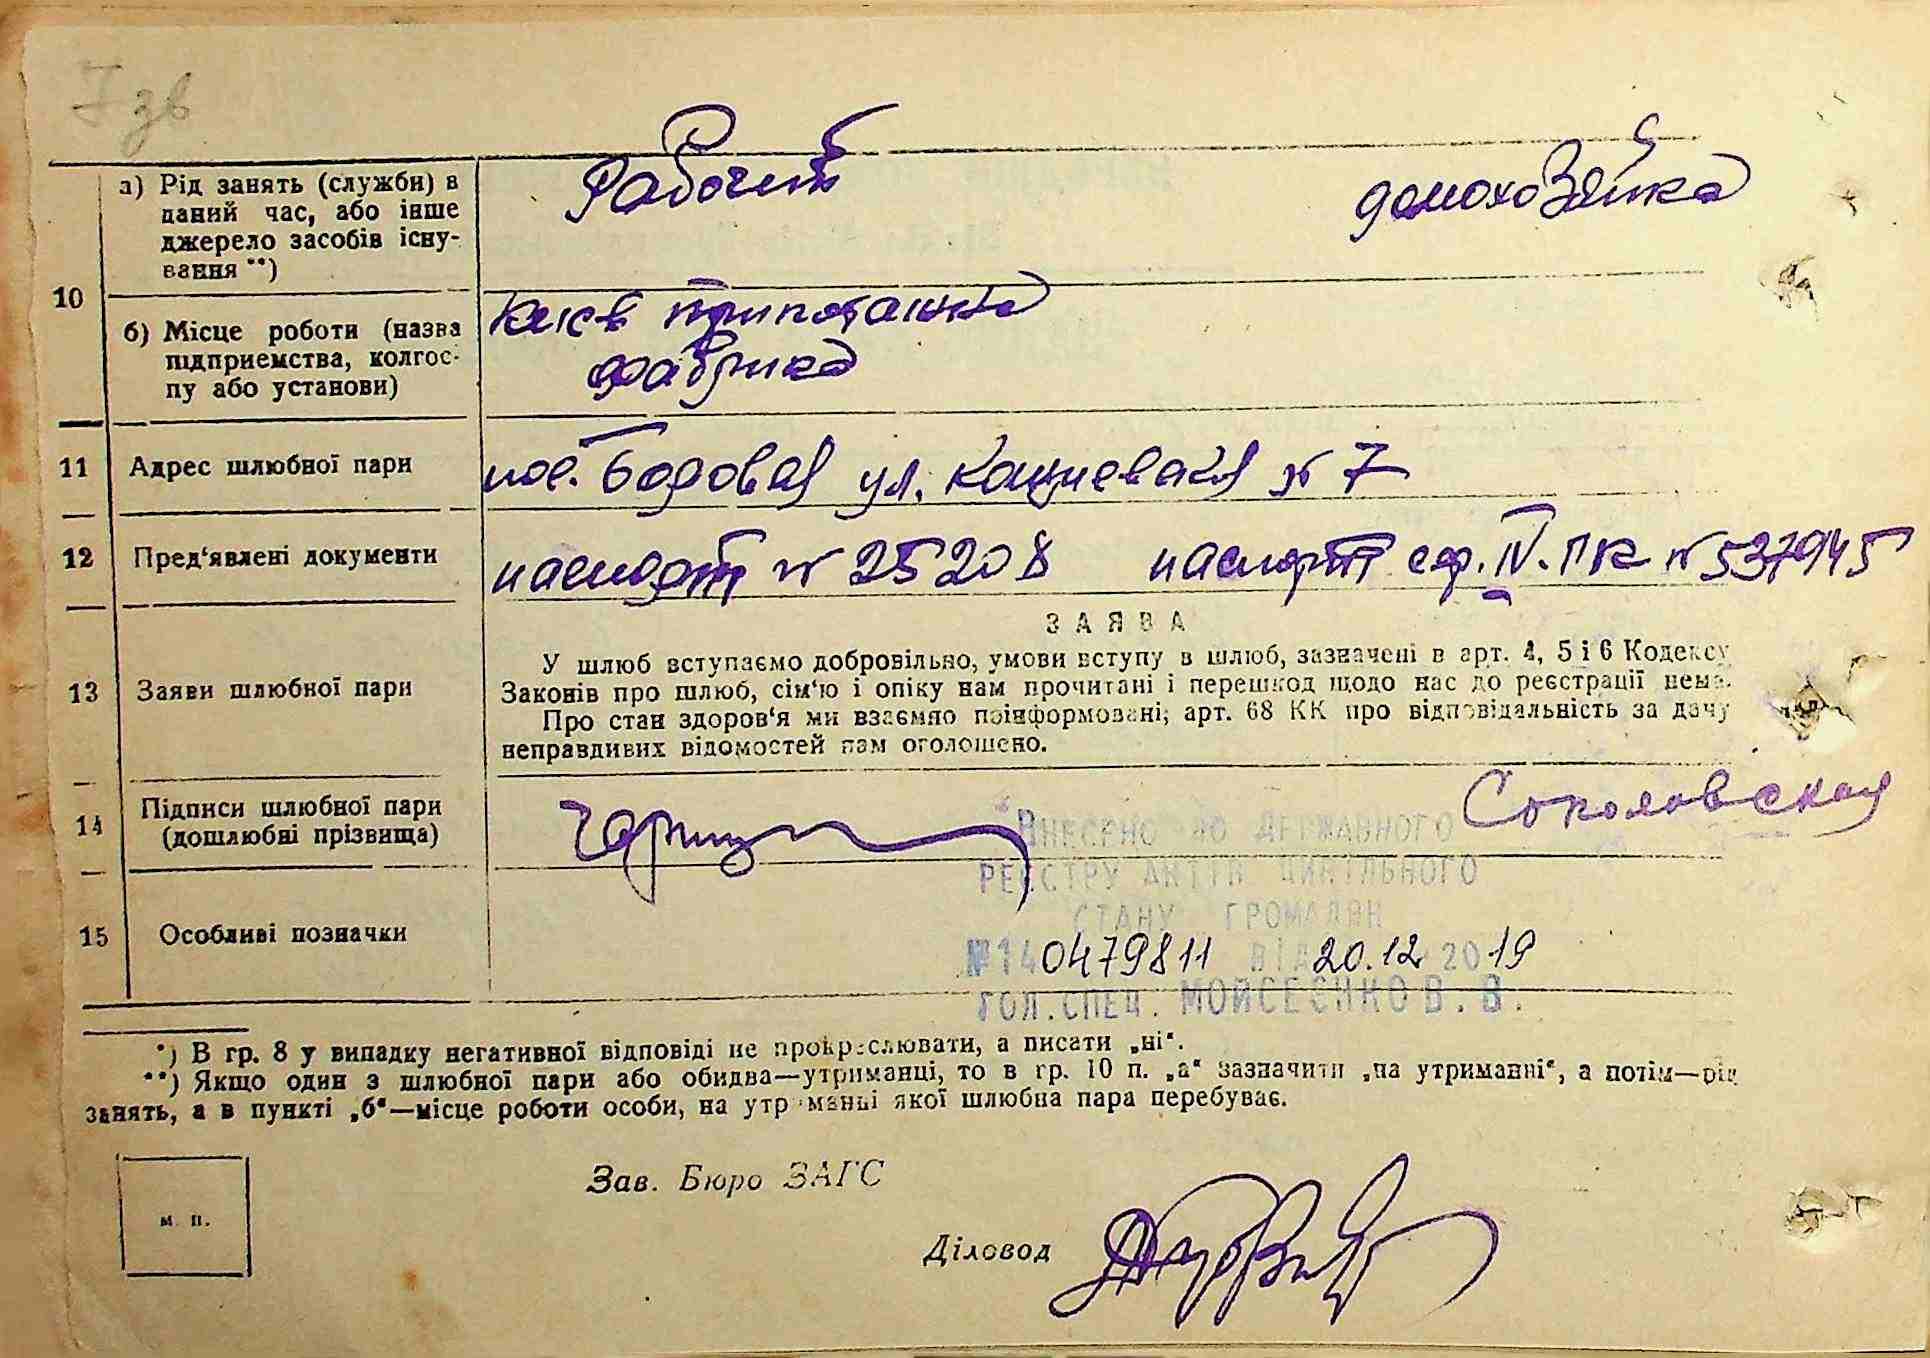 7 зв
а) Рід занять (служби) в
даний час, або інше
джерело засобів існу-
вання **)
Рабочий
домохозяйка
10
б) Місце роботи (назва
підприємства, колгос-
пу або установи)
фабрика
11 Адрес шлюбної пари
пос. Боровая ул. № 7
12 Пред'явлені документи
паспорт № 25208 паспорт сер. IV. ПК № 537945
ЗАЯВА
13 Заяви шлюбної пари
У шлюб вступаємо добровільно, умови вступу в шлюб, зазначені в арт. 4, 5 і 6 Кодексу
Законів про шлюб, сім'ю і опіку нам прочитані і перешкод щодо нас до реєстрації нема.
Про стан здоров'я ми взаємно поінформовані; арт. 68 КК про відповідальність за дачу
неправдивих відомостей нам оголошено.
14 Підписи шлюбної пари
(дошлюбні прізвища)
Соколовская
ВНЕСЕНО ДО ДЕРЖАВНОГО
РЕЄСТРУ АКТІВ ЦИВІЛЬНОГО
СТАНУ ГРОМАДЯН
15 Особливі позначки
№ 140479811 ВІД 20.12 2019
ГОЛ. СПЕЦ. МОЙСЕЄНКО В. В.
*) В гр. 8 у випадку негативної відповіді не прокреслювати, а писати „ні“.
**) Якщо один з шлюбної пари або обидва—утриманці, то в гр. 10 п. „а“ зазначити „на утриманні“, а потім—рід
занять, а в пункті „б“—місце роботи особи, на утриманні якої шлюбна пара перебуває.
Зав. Бюро ЗАГС
м. п.
Діловод